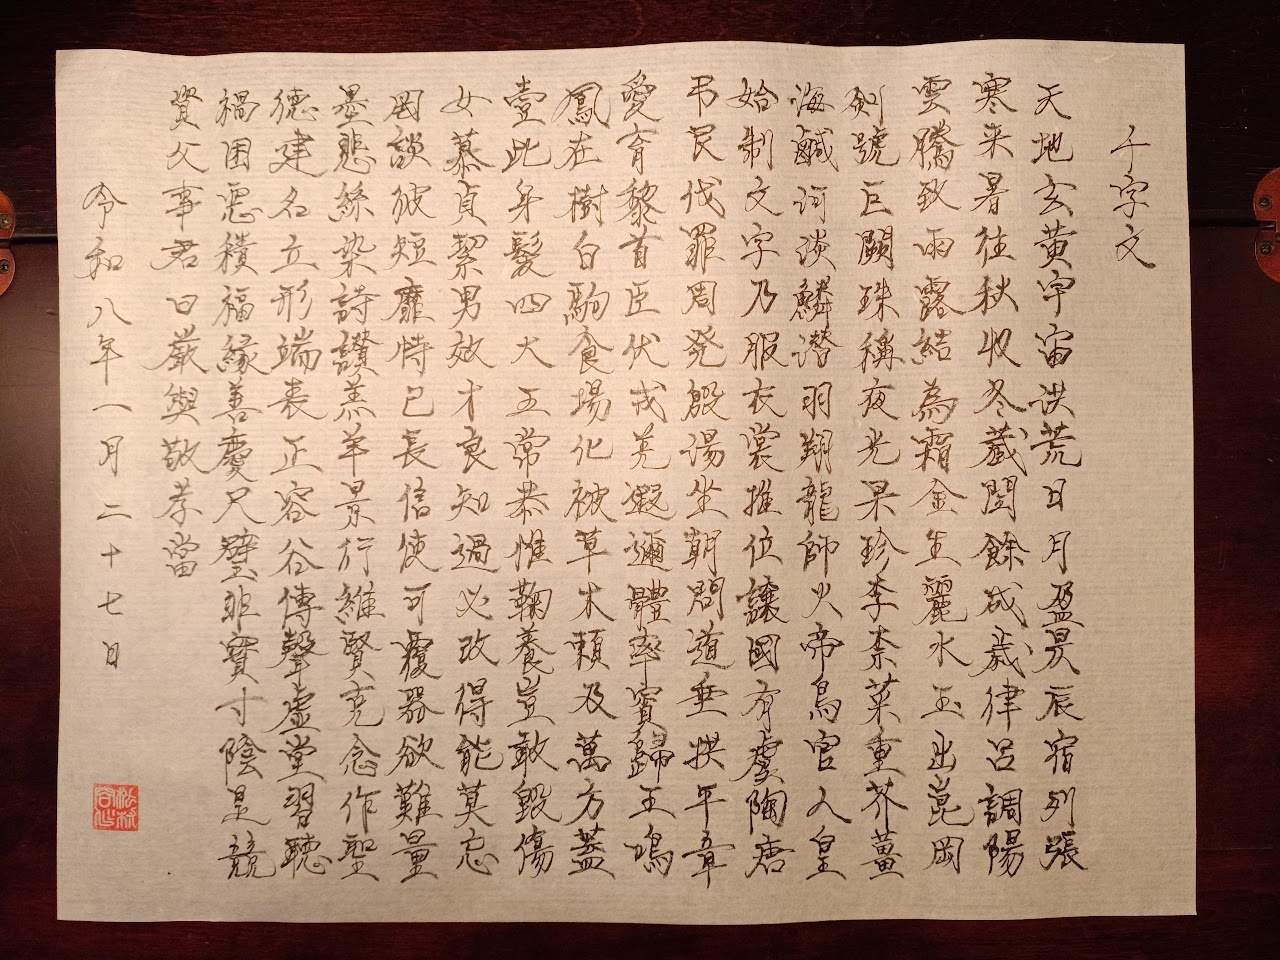 千字文
天地玄黄宇宙洪荒日月盈昃辰宿列張
寒来暑往秋收冬蔵閏餘成歳律呂調陽
雲騰致雨露結為霜金生麗水玉出崑岡
剣號巨闕珠稱夜光果珍李柰菜重芥薑
海鹹河淡鱗潜羽翔龍師火帝鳥官人皇
始制文字乃服衣裳推位譲國有虞陶唐
弔民伐罪周発殷湯坐朝問道垂拱平章
愛育黎首臣伏戎羌遐邇體率賓歸王鳴
鳳在樹白駒食場化被草木頼及萬方蓋
壹此身髪四大五常恭惟鞠養豈敢毀傷
女慕貞絜男效才良知過必改得能莫忘
罔談彼短靡恃己長信使可覆器欲難量
墨悲絲染詩讃羔羊景行維賢克念作聖
徳建名立形端表正容谷傳聲虚堂習聴
禍因悪積福縁善慶尺璧非寳寸陰是競
資父事君曰厳與敬孝當
令和八年一月二十七日